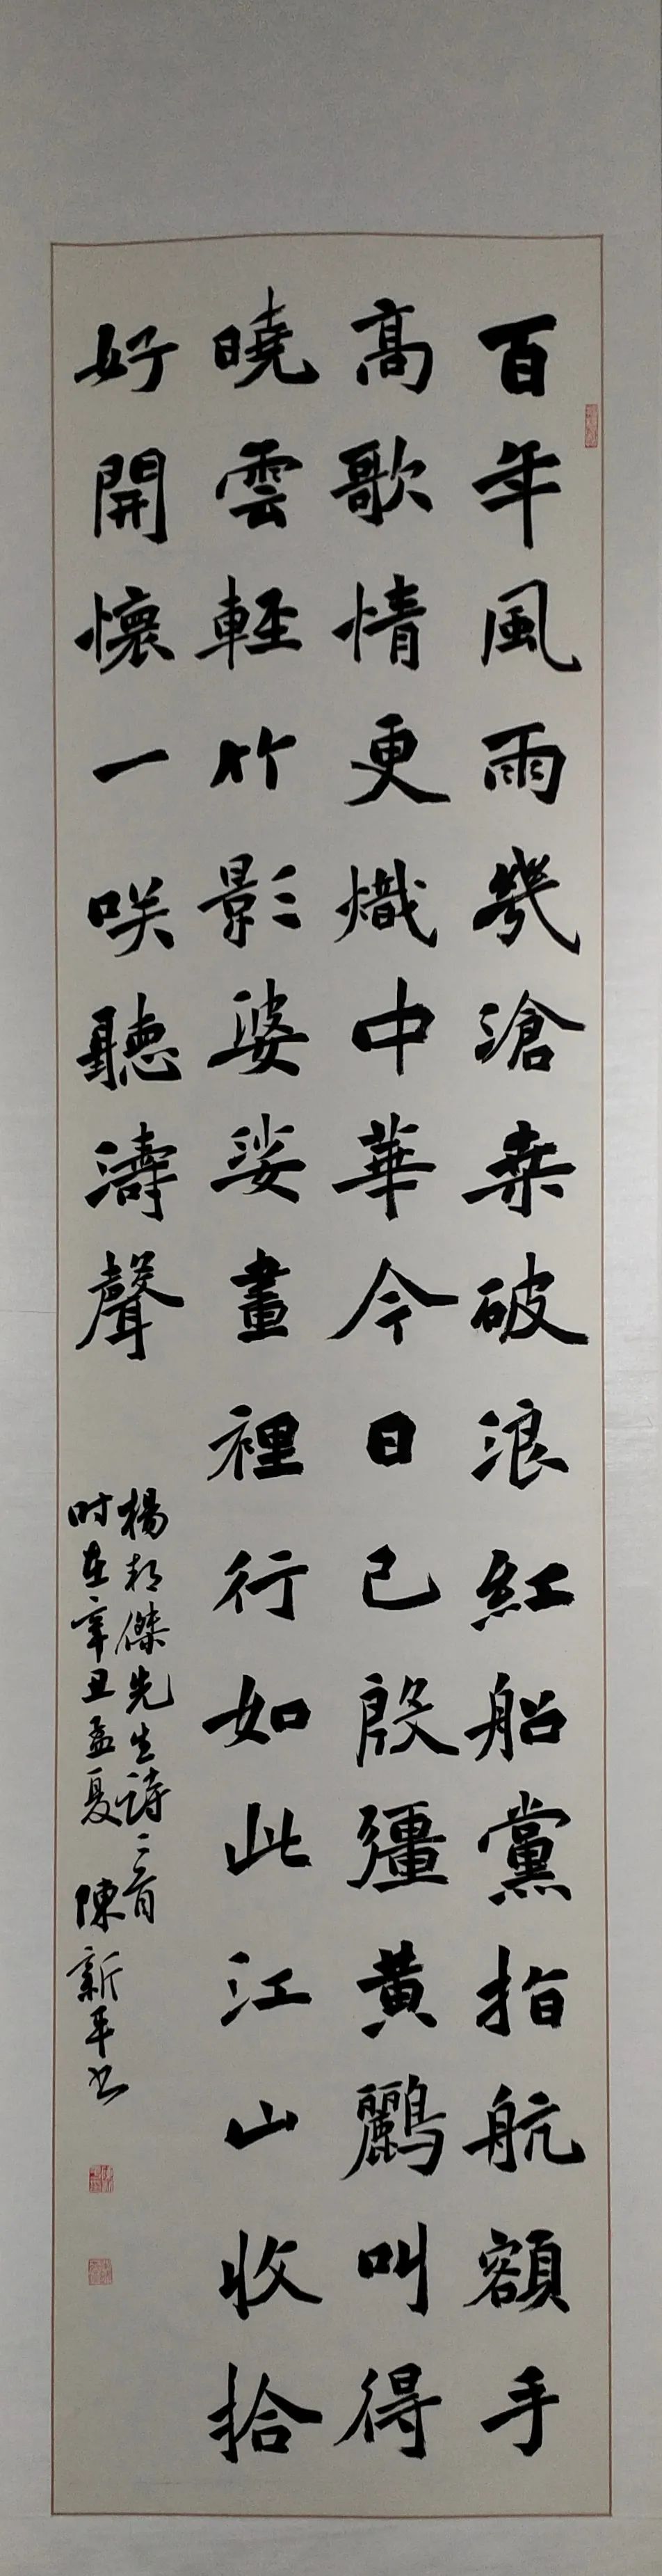 百年風雨幾滄桑破浪紅船黨指航額手
高歌情更熾中華今日已殷彊黄鸝叫得
曉雲輕竹影婆娑畫裡行如此江山收拾
好開懷一咲聽濤聲
楊邦傑先生詩二首
时在辛丑孟夏 陳新平书